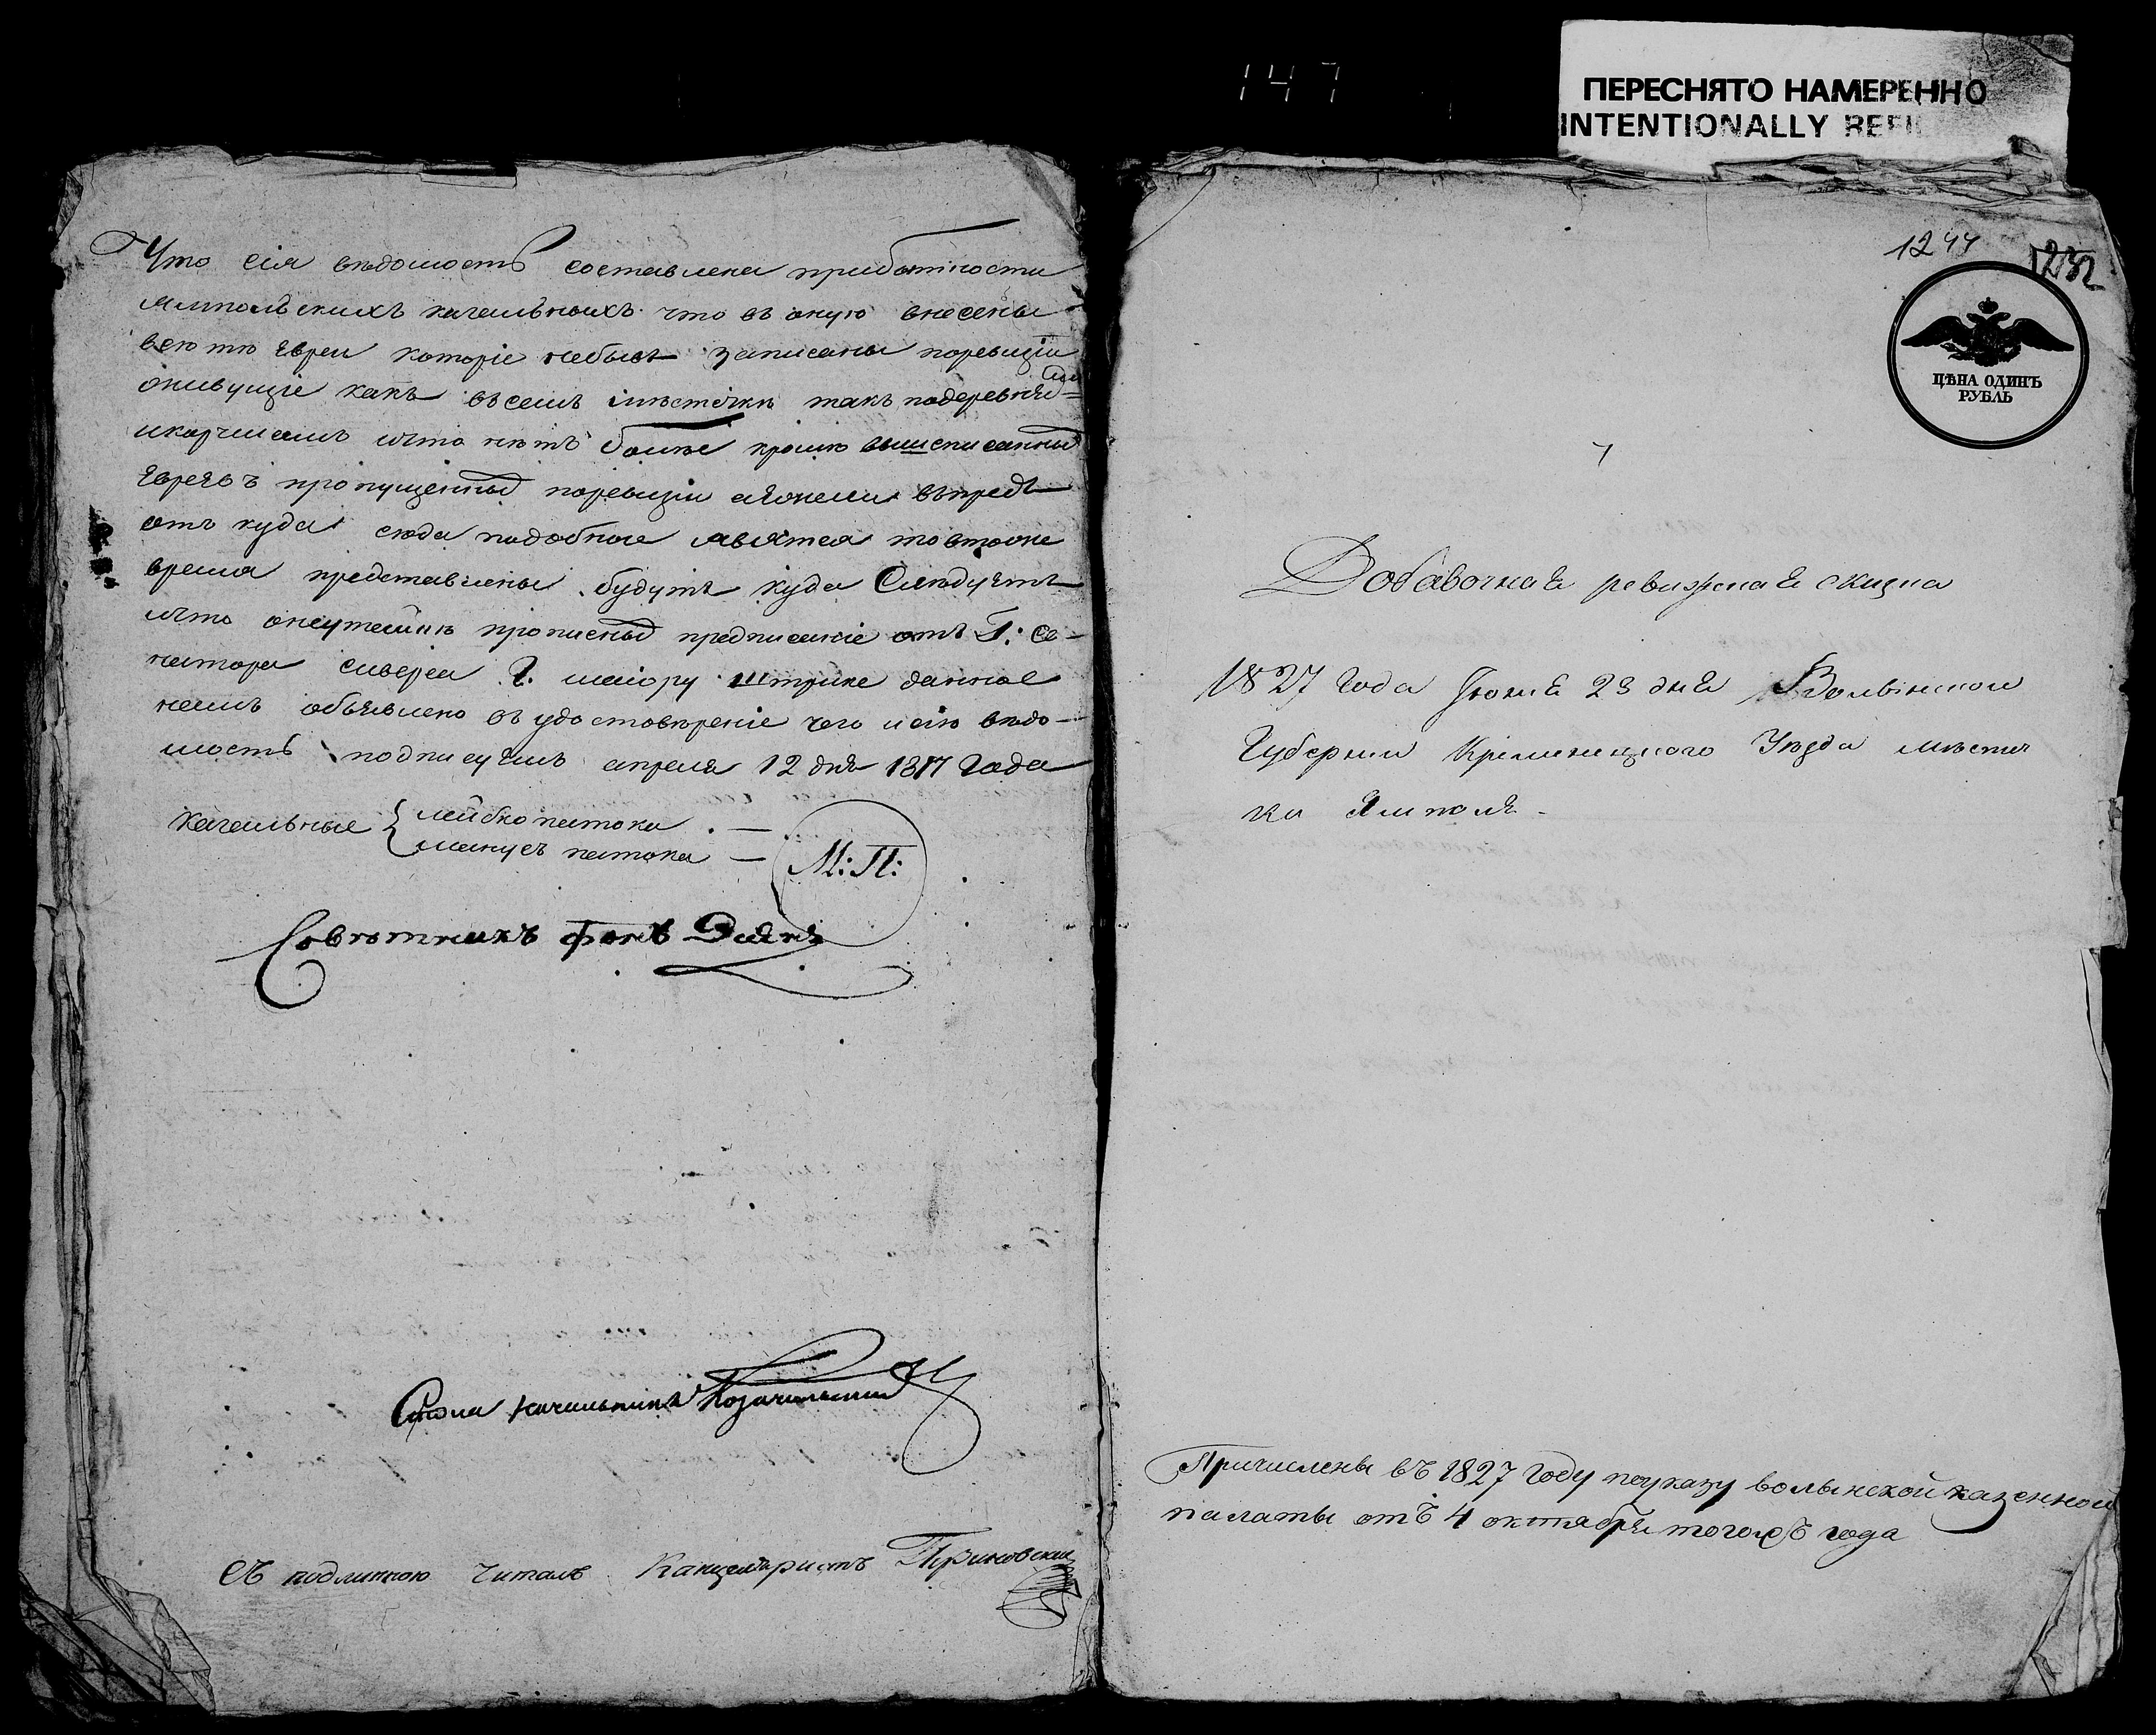 147
ПЕРЕСНЯТО НАМЕРЕННО
INTENTIONALLY REFIL
Что сія вѣдомость составлена прибытности
Ямпольскихъ кагальныхъ что въ оную внесены
всю тѣ Евреи которіе небыли записаны поревизіи
живущіе какъ всемъ мѣстечкѣ такъ подеревнямъ
икорчмамъ ичто нѣтъ болѣе кромѣ вышеписанныхъ
Евреевъ пропущенныхъ поревизіи аежели впредь
отъ куда сюда подобные явятся товтоже
время представлены будутъ куда Слѣдуетъ
ичто прописные предписаніе отъ Г: Се-
натора Сиверса Г. маіору данное
намъ объявлено въ удостовѣреніе чего исію вѣдо-
мость подписуемъ апреля 12 дня 1817 Года
Кагальные { лейбко патока . —
манусъ патока —
М: П:
Совѣтникъ фонъ
Стола начальникъ
Съ подлинною Читалъ Канцеляристъ
1244
232
ЦѢНА ОДИНЪ
РУБЛЬ
Добавочная ревизская скаска
1827 Года Іюня 23 дня Волынской
Губерніи Кременецкого Уезда мѣстеч
ка Ямполя -
Причислены въ 1827 Году поуказу волынской казенной
палаты отъ 4 октября тогожъ года